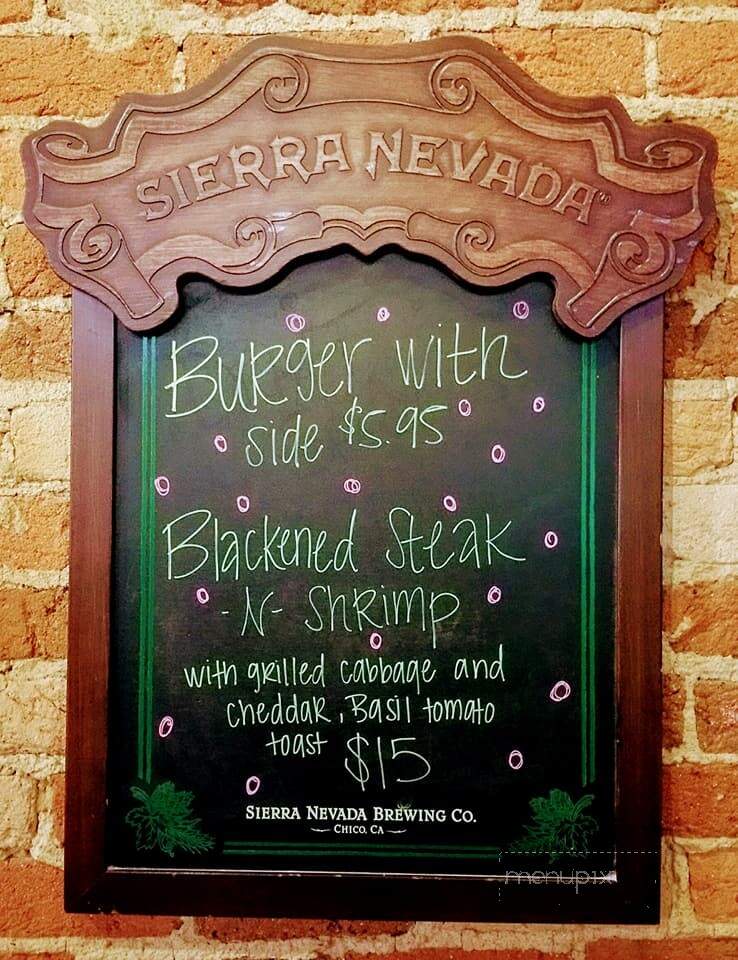 SIERRA NEVADA
Burger with
side $5.95
Blackened Steak
-N- Shrimp
with grilled cabbage and
cheddar, Basil tomato
toast $15
SIERRA NEVADA BREWING CO.
CHICO, CA
menupix